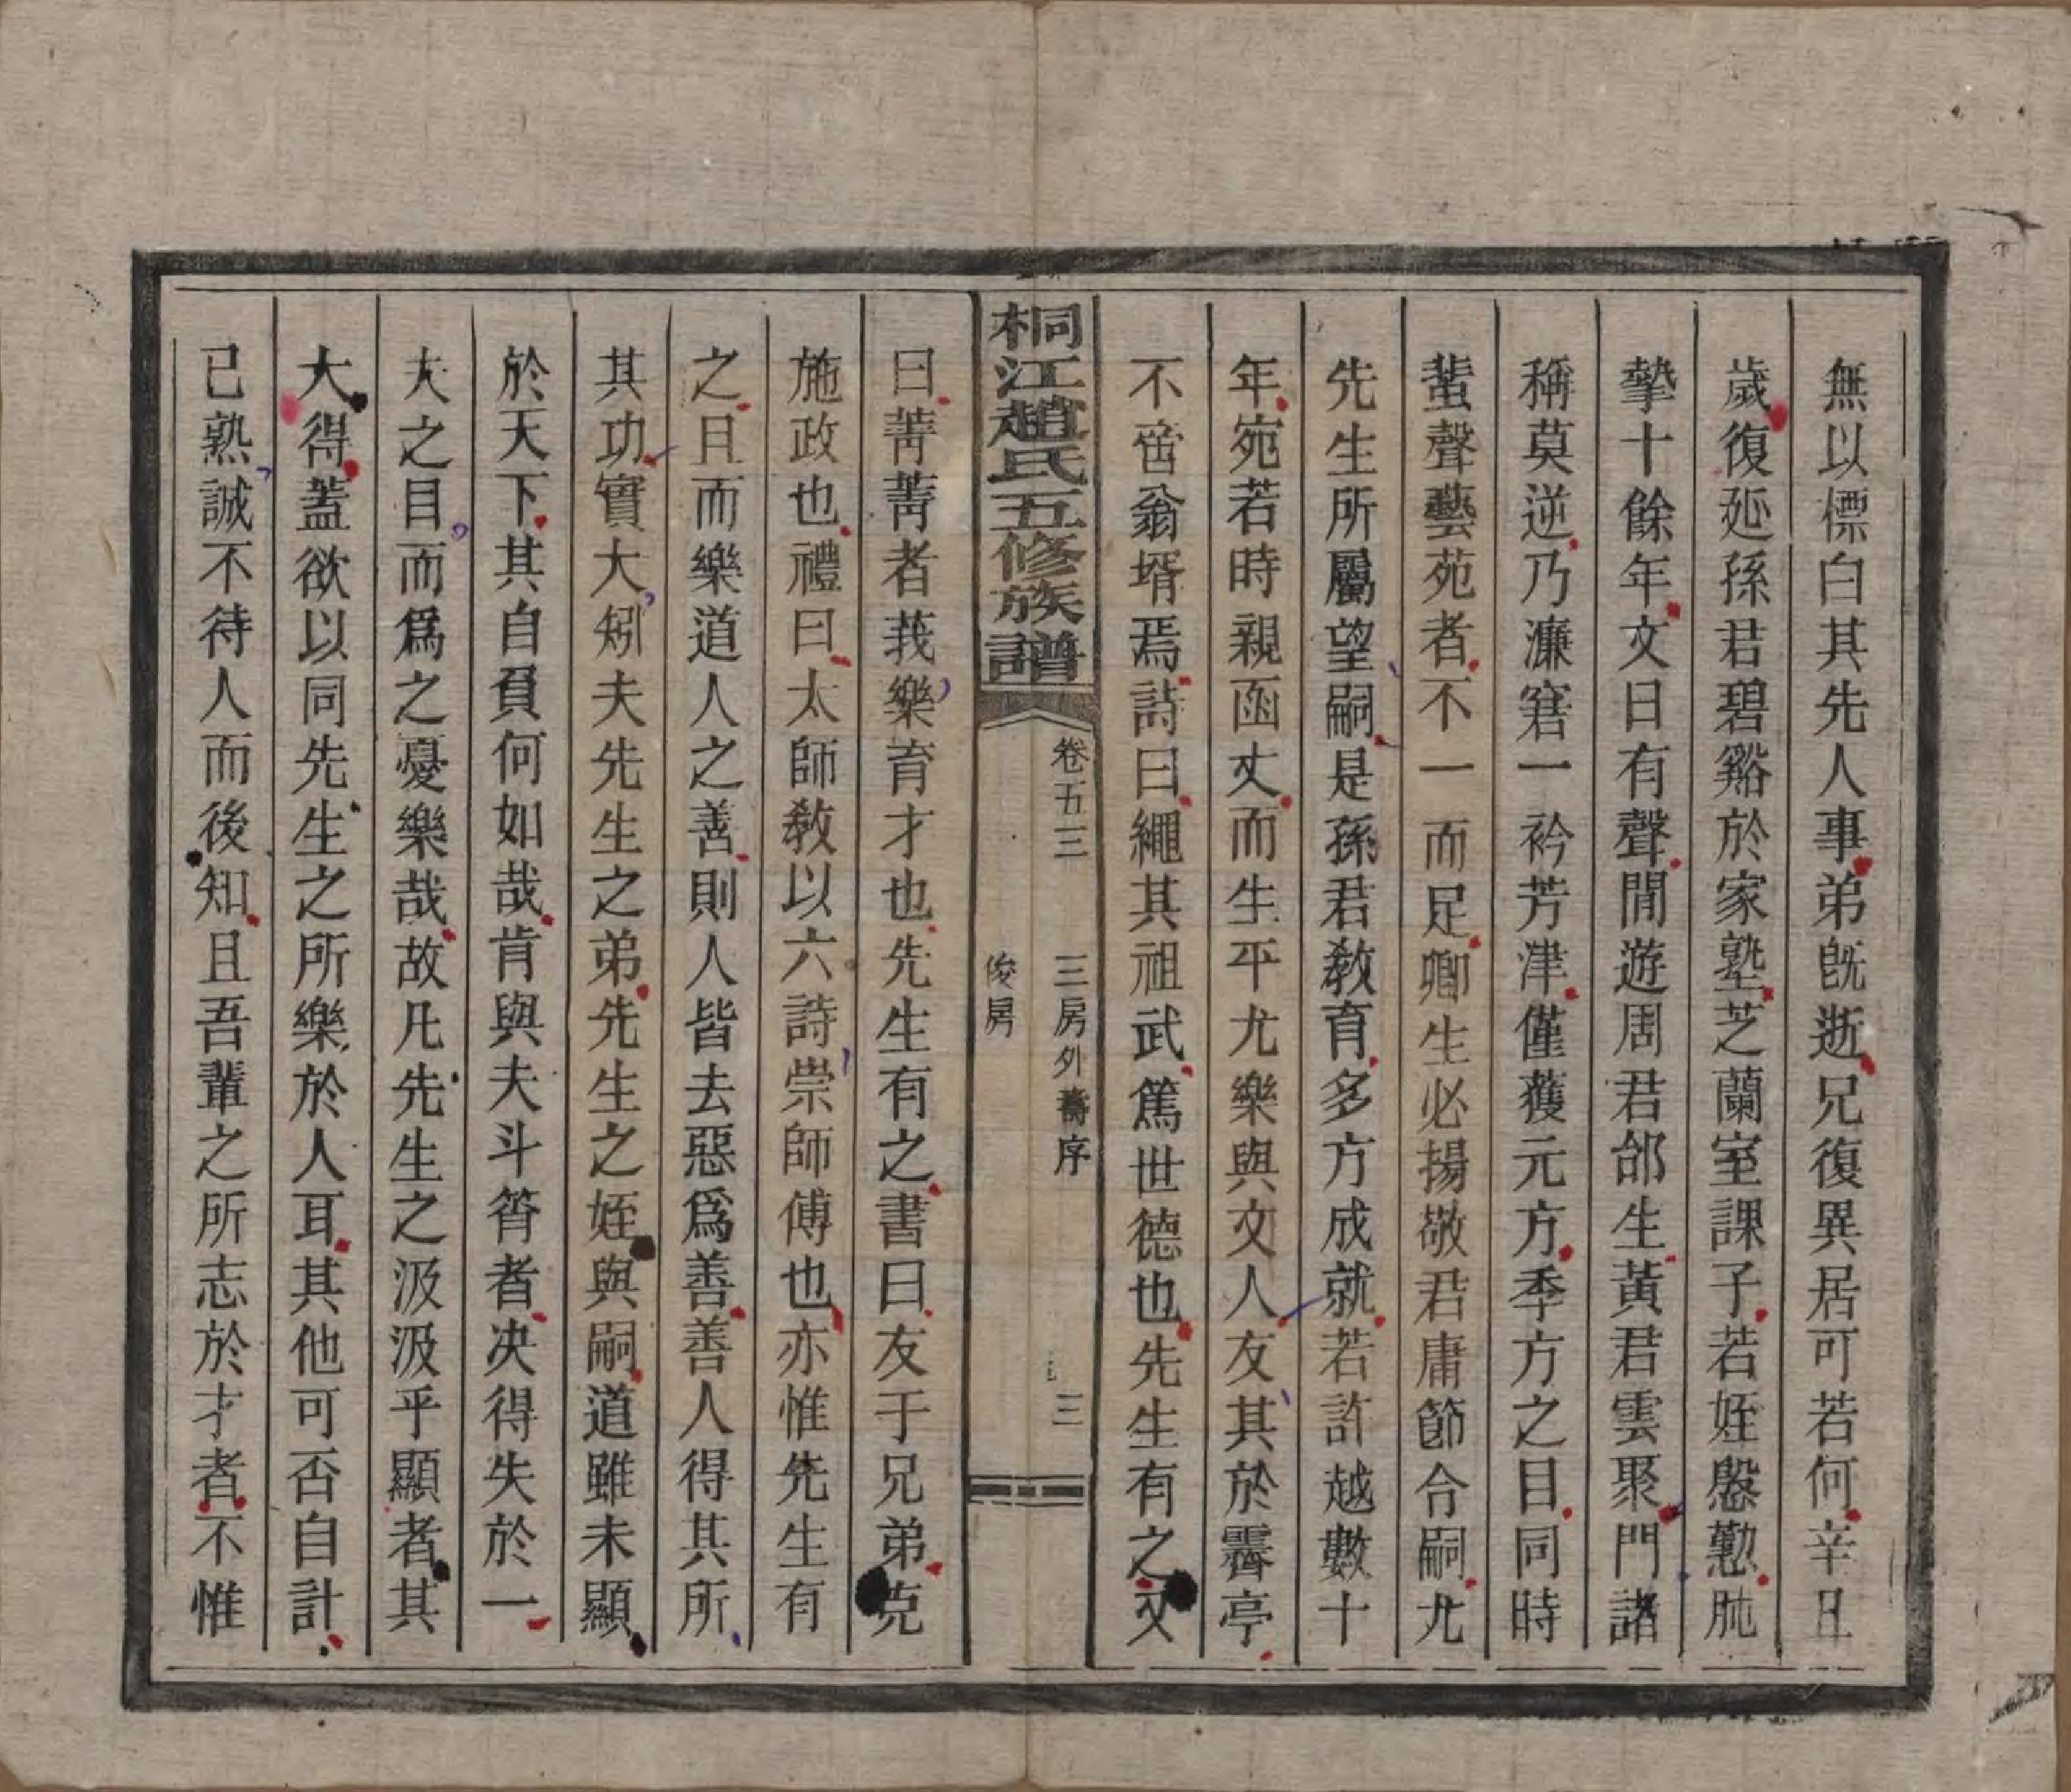 無以標白其先人事弟旣逝兄復異居可若何辛丑
歲復延孫君碧谿於家塾芝蘭室課子若姪慇懃肫
摯十餘年文日有聲閒遊周君郃生黃君雲聚門諸
稱莫逆乃濂窘一衿芳津僅獲元方季方之目同時
蜚聲藝苑者不一而足卿生必揚敬君庸節合嗣尤
先生所屬望嗣是孫君敎育多方成就若許越數十
年宛若時親函丈而生平尤樂與文人友其於霽亭
不啻翁壻焉詩曰繩其祖武篤世德也先生有之又
桐江趙氏五修族譜
卷五三 三房外壽序 三
俊房
曰菁菁者莪樂育才也先生有之書曰友于兄弟克
施政也禮曰太師敎以六詩崇師傅也亦惟先生有
之且而樂道人之善則人皆去惡爲善善人得其所
其功實大矧夫先生之弟先生之姪與嗣道雖未顯
於天下其自負何如哉肯與夫斗筲者决得失於一
夫之目而爲之憂樂哉故凡先生之汲汲乎顯者其
大得蓋欲以同先生之所樂於人耳其他可否自計
已熟誠不待人而後知且吾輩之所志於才者不惟